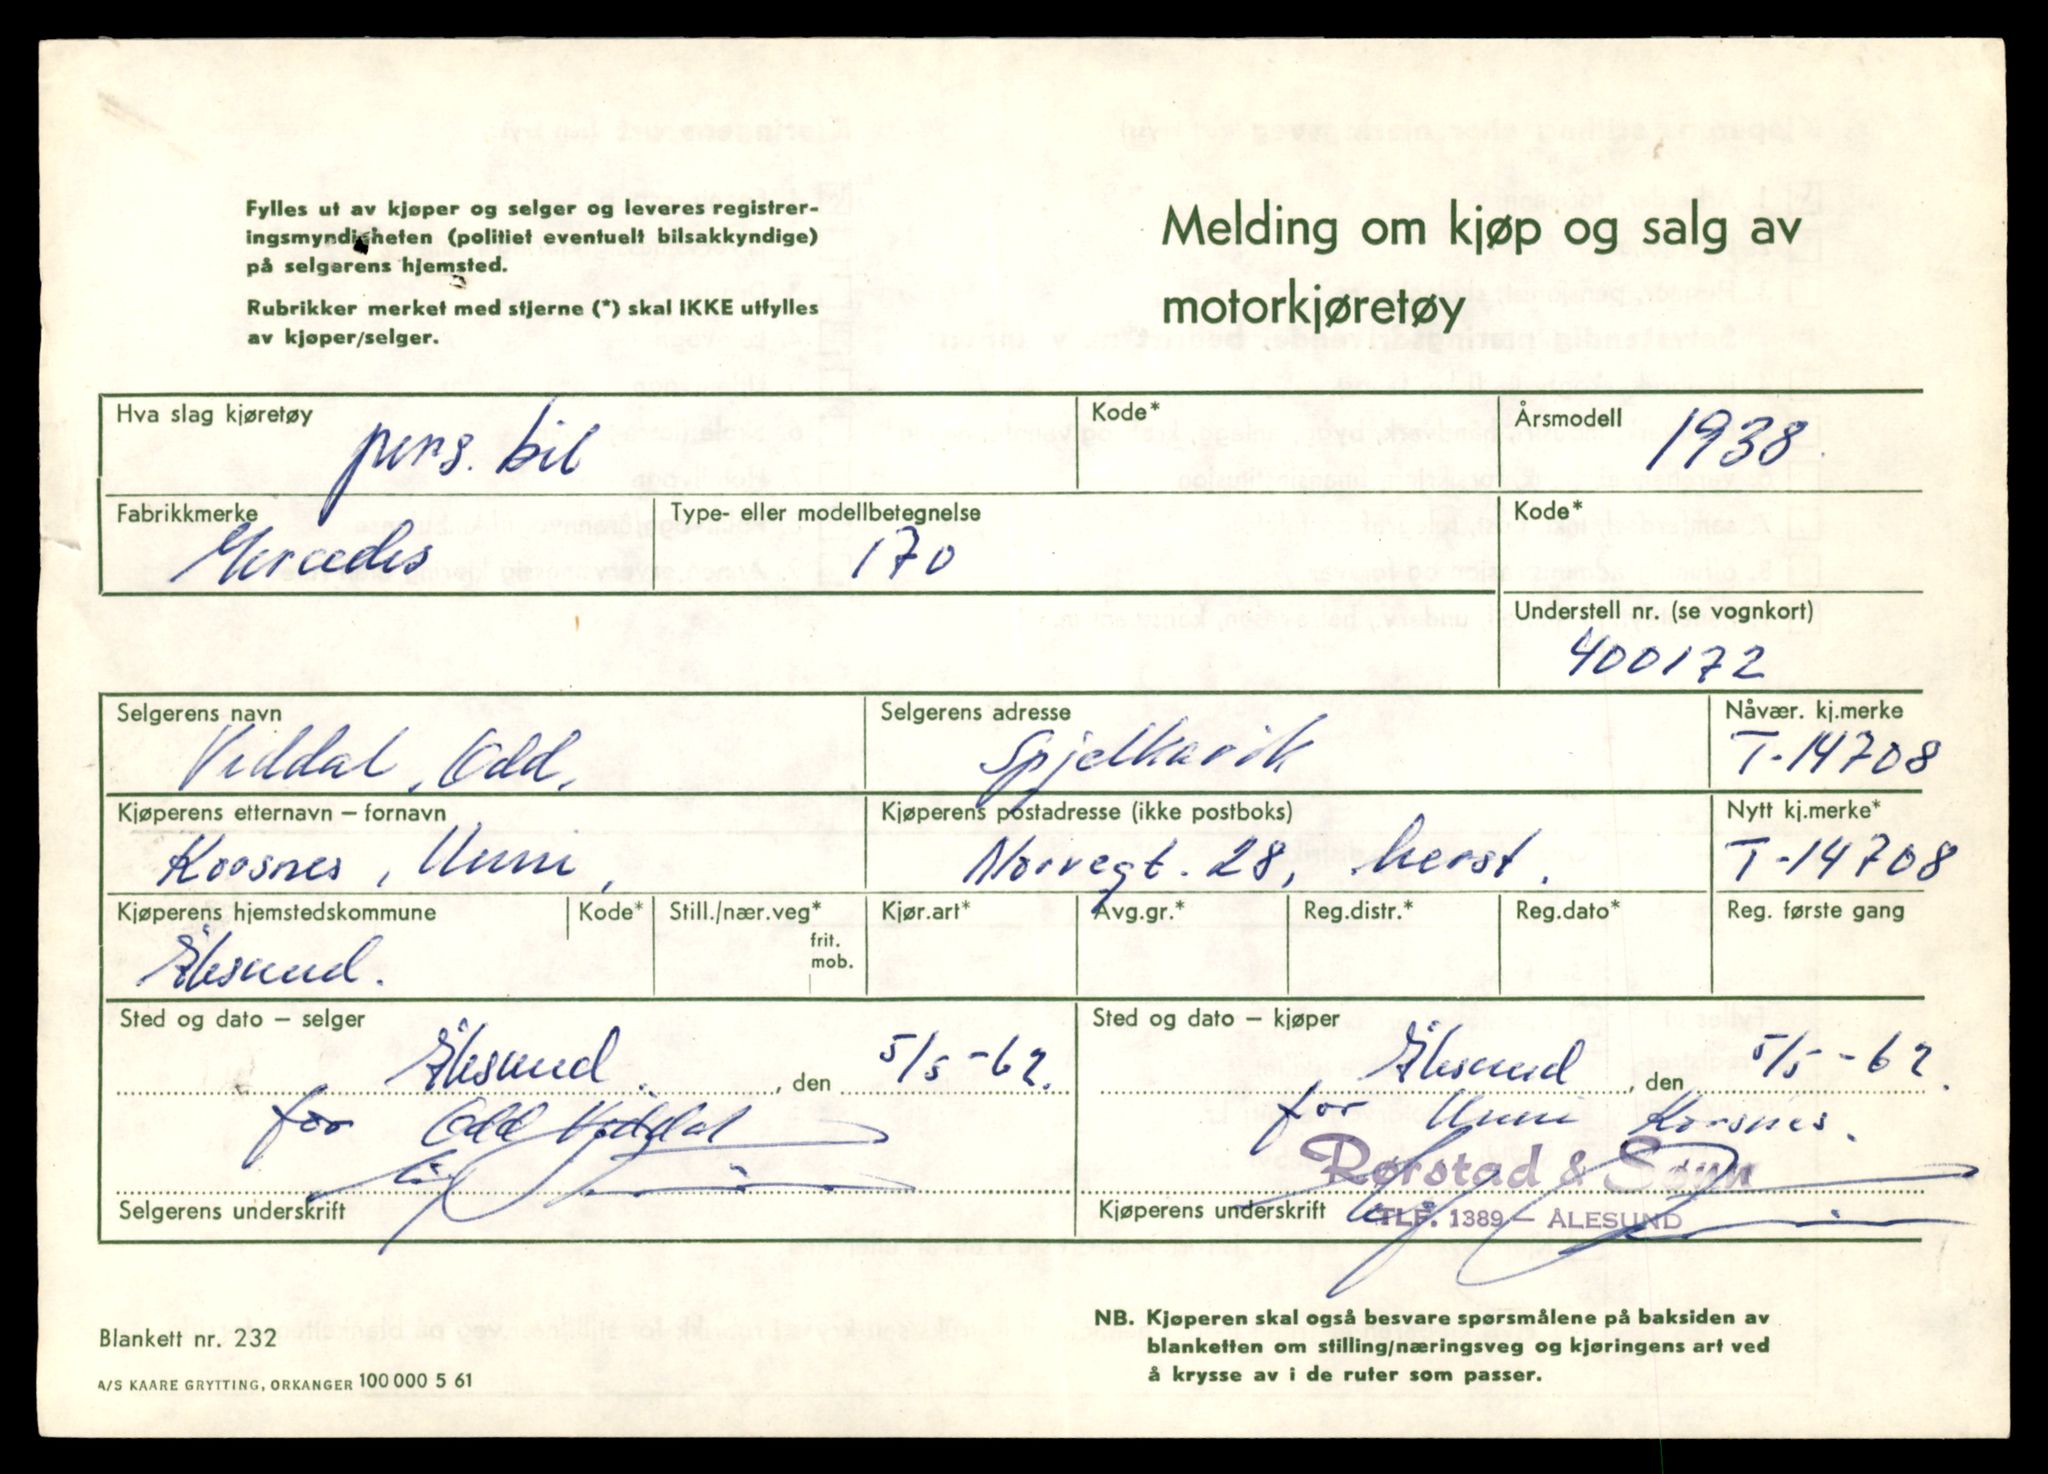 Fylles ut av kjøper og selger og leveres registrer-
ingsmyndigheten (politiet eventuelt bilsakkyndige)
på selgerens hjemsted.
Rubrikker merket med stjerne (*) skal IKKE utfylles
av kjøper/selger.
Melding om kjøp og salg av
motorkjøretøy
Hva slag kjøretøy
pers. bil
Kode*
Årsmodell
1938
Fabrikkmerke
Mercedes
Type- eller modellbetegnelse
170
Kode*
Understell nr. (se vognkort)
400172
Selgerens navn
Viddal, Odd,
Selgerens adresse
Spjelkavik
Nåvær. kj.merke
T-14708
Kjøperens etternavn – fornavn
Korsnes, Unni,
Kjøperens postadresse (ikke postboks)
Norvegt. 28, herst.
Nytt kj.merke*
T-14708
Kjøperens hjemstedskommune
Ålesund.
Kode*
Still./nær.veg*
frit.
mob.
Kjør.art*
Avg.gr.*
Reg.distr.*
Reg.dato*
Reg. første gang
Sted og dato – selger
Ålesund. , den 5/5-62.
for Odd Viddal
Selgerens underskrift
Sted og dato – kjøper
Ålesund , den 5/5-62.
for Unni Korsnes.
Rørstad & Sønn
Kjøperens underskrift
TLF. 1389 — ÅLESUND
Blankett nr. 232
A/S KAARE GRYTTING, ORKANGER 100 000 5 61
NB. Kjøperen skal også besvare spørsmålene på baksiden av
blanketten om stilling/næringsveg og kjøringens art ved
å krysse av i de ruter som passer.